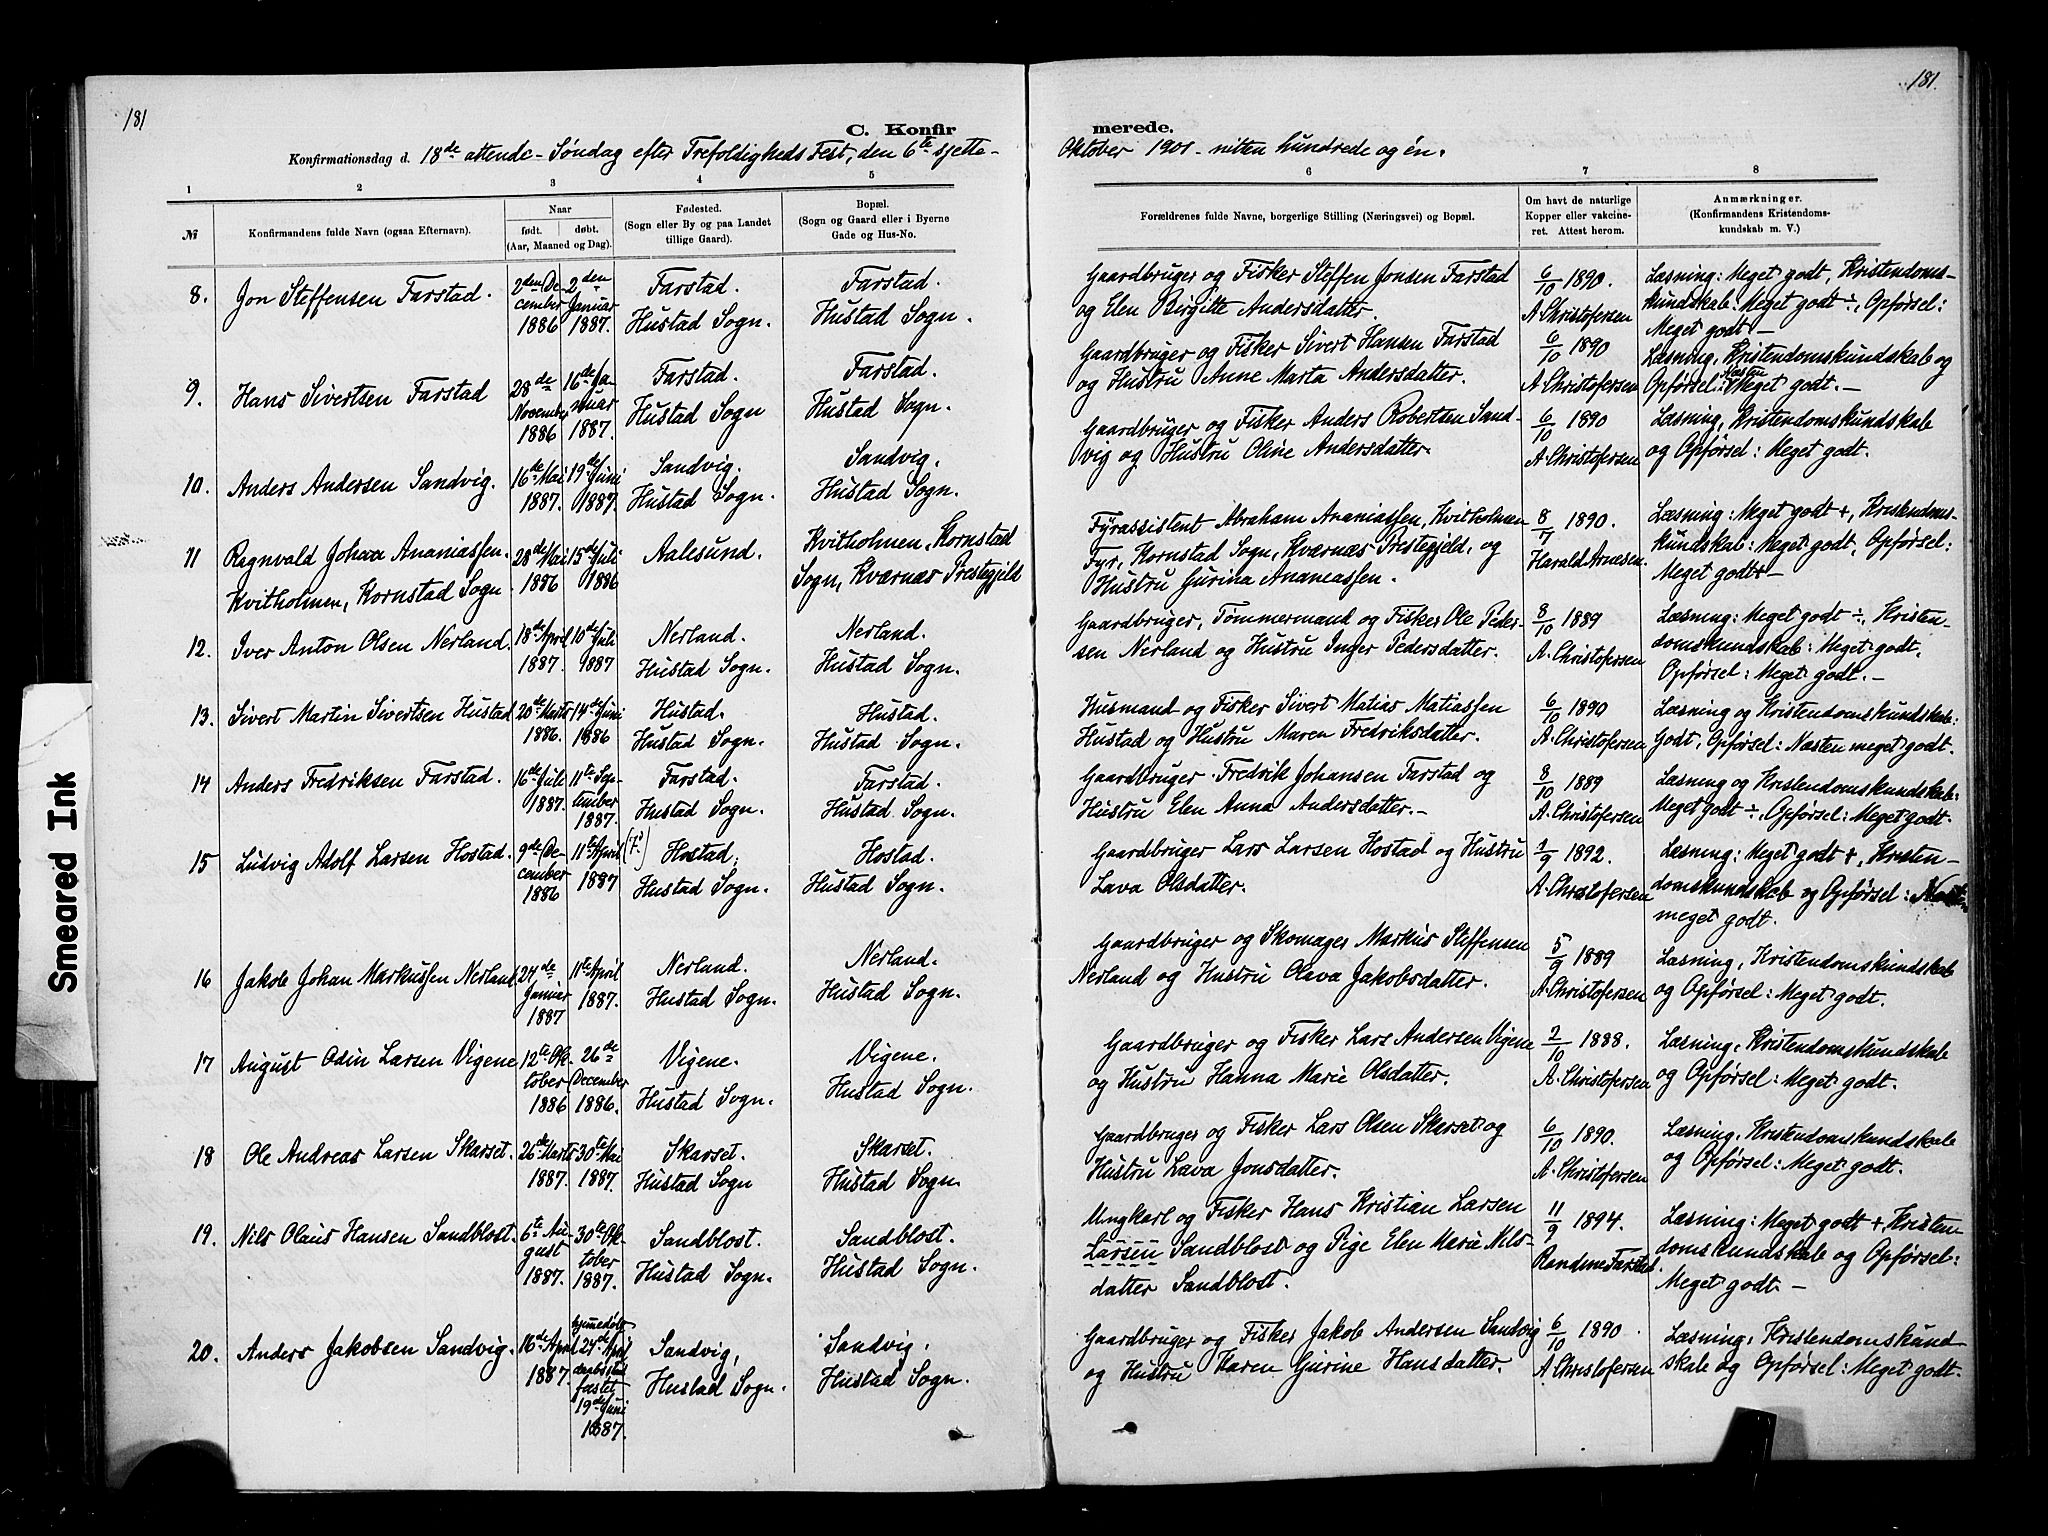 181
181.
C. Konfir
merede.
Konfirmationsdag d. 18de attende Søndag efter Trefoldigheds Fest, den 6te sjette
Oktober 1901 - nitten hundrede og én.
1 2 3 4 5
6 7 8
№
Konfirmandens fulde Navn (ogsaa Efternavn).
Naar
født. døbt.
(Aar, Maaned og Dag).
Fødested.
(Sogn eller By og paa Landet
tillige Gaard).
Bopæl.
(Sogn og Gaard eller i Byerne
Gade og Hus-No.
Forældrenes fulde Navne, borgerlige Stilling (Næringsvei) og Bopæl.
Om havt de naturlige
Kopper eller vakcine-
ret. Attest herom.
Anmærkninger.
(Konfirmandens Kristendoms-
kundskab m. V.)
8. Jon Steffensen Farstad.
2den De-
cember
1886
2den
Januar
1887.
Farstad.
Hustad Sogn.
Farstad.
Hustad Sogn.
Gaardbruger og Fisker Steffen Jonsen Farstad
og Elen Birgitte Andersdatter.
6/10 1890.
A. Christofersen
Læsning: Meget godt, Kristendoms-
kundskab: Meget godt ÷, Opførsel:
Meget godt –
9. Hans Sivertsen Farstad
28de
November
1886
16de Ja-
nuar
1887.
Farstad.
Hustad Sogn
Farstad.
Hustad Sogn.
Gaardbruger og Fisker Sivert Hansen Farstad
og Hustru Anne Marta Andersdatter.
6/10 1890
A. Christofersen
Læsning, Kristendomskundskab og
Opførsel: Næsten Meget godt. –
10. Anders Andersen Sandvig.
16de Mai
1887.
19de Juni
1887.
Sandvig.
Hustad Sogn.
Sandvig.
Hustad Sogn.
Gaardbruger og Fisker Anders Robertsen Sand-
vig og Hustru Oline Andersdatter.
6/10 1890
A. Christofersen
Læsning, Kristendomskundskab
og Opførsel: Meget godt.
11 Ragnvald Johan Ananiassen.
Kvitholmen, Kornstad Sogn.
28de Mai
1886
15de Juli
1886
Aalesund.
Kvitholmen, Kornstad
Sogn, Kværnæs Prestegjeld
Fyrassistent Abraham Ananiassen, Kvitholmen
Fyr, Kornstad Sogn, Kværnæs Prestegjeld, og
Hustru Jurina Ananiassen.
8/7 1890.
Harald Arnesen.
Læsning: Meget godt +, Kristendoms-
kundskab: Meget godt, Opførsel:
Meget godt + –
12. Iver Anton Olsen Nerland.
18de April
1887.
10de Juli
1887
Nerland.
Hustad Sogn.
Nerland.
Hustad Sogn.
Gaardbruger, Tømmermand og Fisker Ole Peder-
sen Nerland og Hustru Inger Pedersdatter.
8/10 1889
A. Christofersen
Læsning: Meget godt ÷, Kristen-
domskundskab: Meget godt,
Opførsel: Meget godt. –
13. Sivert Martin Sivertsen Hustad
20de Marts
1886.
14de Juni
1886
Hustad.
Hustad Sogn.
Hustad.
Hustad Sogn.
Husmand og Fisker Sivert Matias Matiassen
Hustad og Hustru Maren Fredriksdatter.
6/10 1890
A. Christofersen
Læsning og Kristendomskundskab:
Godt, Opførsel: Næsten meget godt.
14 Anders Fredriksen Farstad.
16de Juli
1887.
11te Sep-
tember
1887.
Farstad.
Hustad Sogn.
Farstad.
Hustad Sogn.
Gaardbruger Fredrik Johansen Farstad og
Hustru Elen Anna Andersdatter. –
8/10 1889
A. Christofersen
Læsning og Kristendomskundskab:
Meget godt ÷, Opførsel: Meget godt.
15 Ludvig Adolf Larsen Hostad.
9de De-
cember
1886
11te April
1887
Hostad,
Hustad Sogn.
Hostad.
Hustad Sogn.
Gaardbruger Lars Larsen Hostad og Hustru
Lava Olsdatter.
1/9 1892.
A. Christofersen
Læsning: Meget godt +, Kristen-
domskundskab og Opførsel: Næsten
meget godt.
16 Jakob Johan Markussen Nerland
24de
Januar
1887
11te April
1887.
Nerland.
Hustad Sogn.
Nerland.
Hustad Sogn.
Gaardbruger og Skomager Markus Steffensen
Nerland og Hustru Olava Jakobsdatter.
5/9 1889
A. Christofersen
Læsning, Kristendomskundskab
og Opførsel: Meget godt.
17 August Odin Larsen Vigene
12te Ok-
tober
1886
26de
December
1886.
Vigene.
Hustad Sogn.
Vigene.
Hustad Sogn.
Gaardbruger og Fisker Lars Andersen Vigene
og Hustru Hanna Marie Olsdatter.
2/10 1888.
A. Christofersen
Læsning, Kristendomskundskab
og Opførsel: Meget godt.
18 Ole Andreas Larsen Skarset.
26de Marts
1887.
30te Mai
1887.
Skarset.
Hustad Sogn
Skarset.
Hustad Sogn.
Gaardbruger og Fisker Lars Olsen Skarset og
Hustru Lava Jonsdatter.
6/10 1890.
A. Christofersen
Læsning, Kristendomskundskab
og Opførsel: Meget godt.
19. Nils Olaus Hansen Sandblost.
6te Au-
gust
1887.
30te Ok-
tober
1887.
Sandblost.
Hustad Sogn.
Sandblost.
Hustad Sogn.
Ungkarl og Fisker Hans Kristian Larsen
Larsen Sandblost og Pige Elen Marie Nils-
datter Sandblost.
11/9 1894.
Randine Farstad.
Læsning: Meget godt + Kristen-
domskundskab og Opførsel:
Meget godt. –
20. Anders Jakobsen Sandvig.
16de April
1887.
hjemmedøbt
24de April
daabs
fæstet
19de Juni
1887.
Sandvig,
Hustad Sogn.
Sandvig.
Hustad Sogn.
Gaardbruger og Fisker Jakob Andersen Sandvig
og Hustru Karen Gurine Hansdatter.
6/10 1890.
A. Christofersen
Læsning, Kristendomskund-
skab og Opførsel: Meget godt.
Smeared Ink